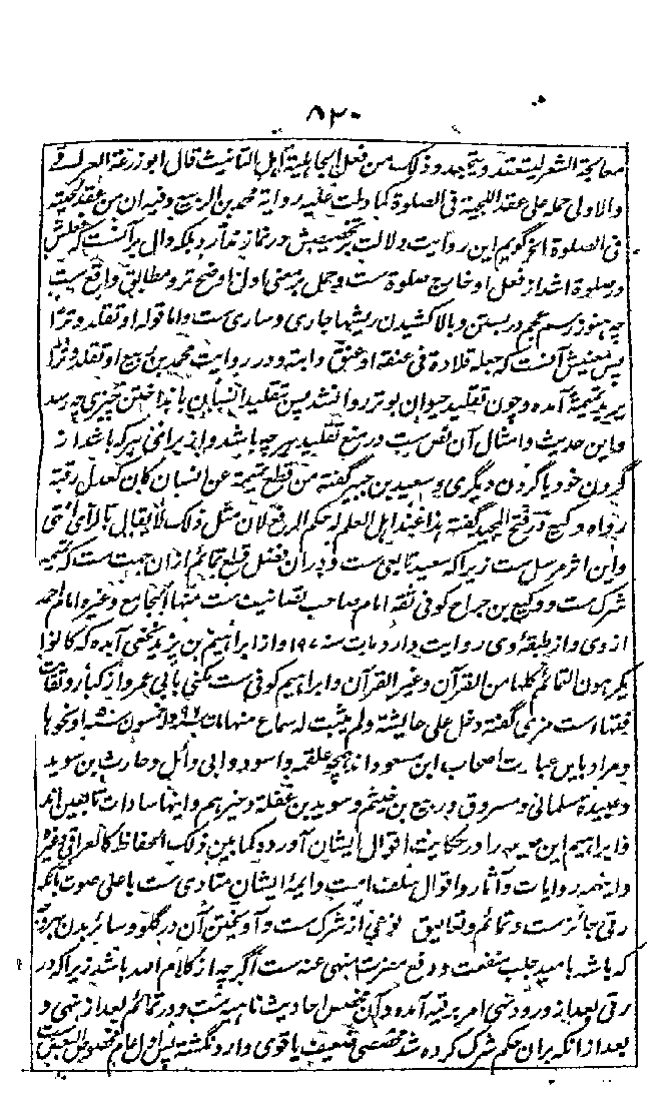 ۸۲۰
معالجة الشعر لیتعقد و یتجعد و ذلک من فعل الجاهلیة اهل التانیث قال ابو زرعة العراقی
والاولی حمله علی عقد اللحیة فی الصلوة کما دلت علیه روایة محمد بن الربیع وفیه ان من عقد لحیته
فی الصلوة الخ گویم این روایت دلالت بر تخصیصش در نماز ندارد بلکه دال برآنست که فعلش
در صلوة اشد از فعل او خارج صلوة ست و حمل بر معنی اول اوضح تر و مطابق واقع ست
چه هنوز رسم عجم در بستن و بالا کشیدن ریشها جاری و ساری ست واما قوله او تقلد وترا
پس معنیش آنست که جعله قلادة فی عنقه او عنق دابته و در روایت محمد بن ربیع او تقلد وترا
یرید تمیمة آمده و چون تقلید حیوان بوتر روا نشد پس تقلید انسان بانداختن چیزی چه رسد
و این حدیث و امثال آن نص ست در منع تقلید هر چه باشد و از برای هر که باشد از
گردن خود یا گردن دیگری و سعید بن جبیر گفته من قطع تمیمة عن انسان کان کعدل رقبة
رواه وکیع در فتح المجید گفته هذا عند اهل العلم له حکم الرفع لان مثل ذلک لا یقال بالرأی انتهی
و این اثر مرسل ست زیرا که سعید تابعی ست و دران فضل قطع تمائم ازان جهت ست که تمیمه
شرک ست و وکیع بن جراح کوفی ثقه امام صاحب تصانیف ست منها الجامع وغیره امام احمد
از وی و از طبقۀ وی روایت دارد مات سنه ۱۹۷ و از ابراهیم بن یزید نخعی آمده که کانوا
یکرهون التمائم کلها من القرآن وغیر القرآن و ابراهیم کوفی ست مکنی بابی عمر و از کبار وثقات
فقها است مزی گفته دخل علی عائشة ولم یثبت له سماع منها مات سنه ۹۶ وله خمسون سنة او نحوها
و مراد باین عبارت اصحاب ابن مسعود اند همچو علقمه و اسود و ابی وائل و حارث بن سوید
و عبیدة سلمانی و مسروق و ربیع بن خیثم و سوید بن غفلة وغیرهم و اینها سادات تابعین اند
و ابراهیم این صیغه را در حکایت اقوال ایشان آورده کما بین ذلک الحفاظ کالعراقی وغیره
و اینهمه روایات و آثار و اقوال سلف امت و ایمۀ ایشان منادی ست باعلی صوت بآنکه
رقی جائز ست و تمائم و تعالیق نوعی از شرک ست و آویختن آن در گلو و سائر بدن بهر وجه
که باشد بامید جلب منفعت و دفع مضرت منهی عنه ست اگرچه از کلام الله باشد زیرا که در
رقی بعد از ورود نهی امر برقیه آمده و آن مخصص احادیث ناهیه ست و در تمائم بعد از نهی و
بعد از انکه بران حکم شرک کرده شد مخصصی ضعیف یا قوی وارد نگشته پس او عام مخصوص البعض نیست